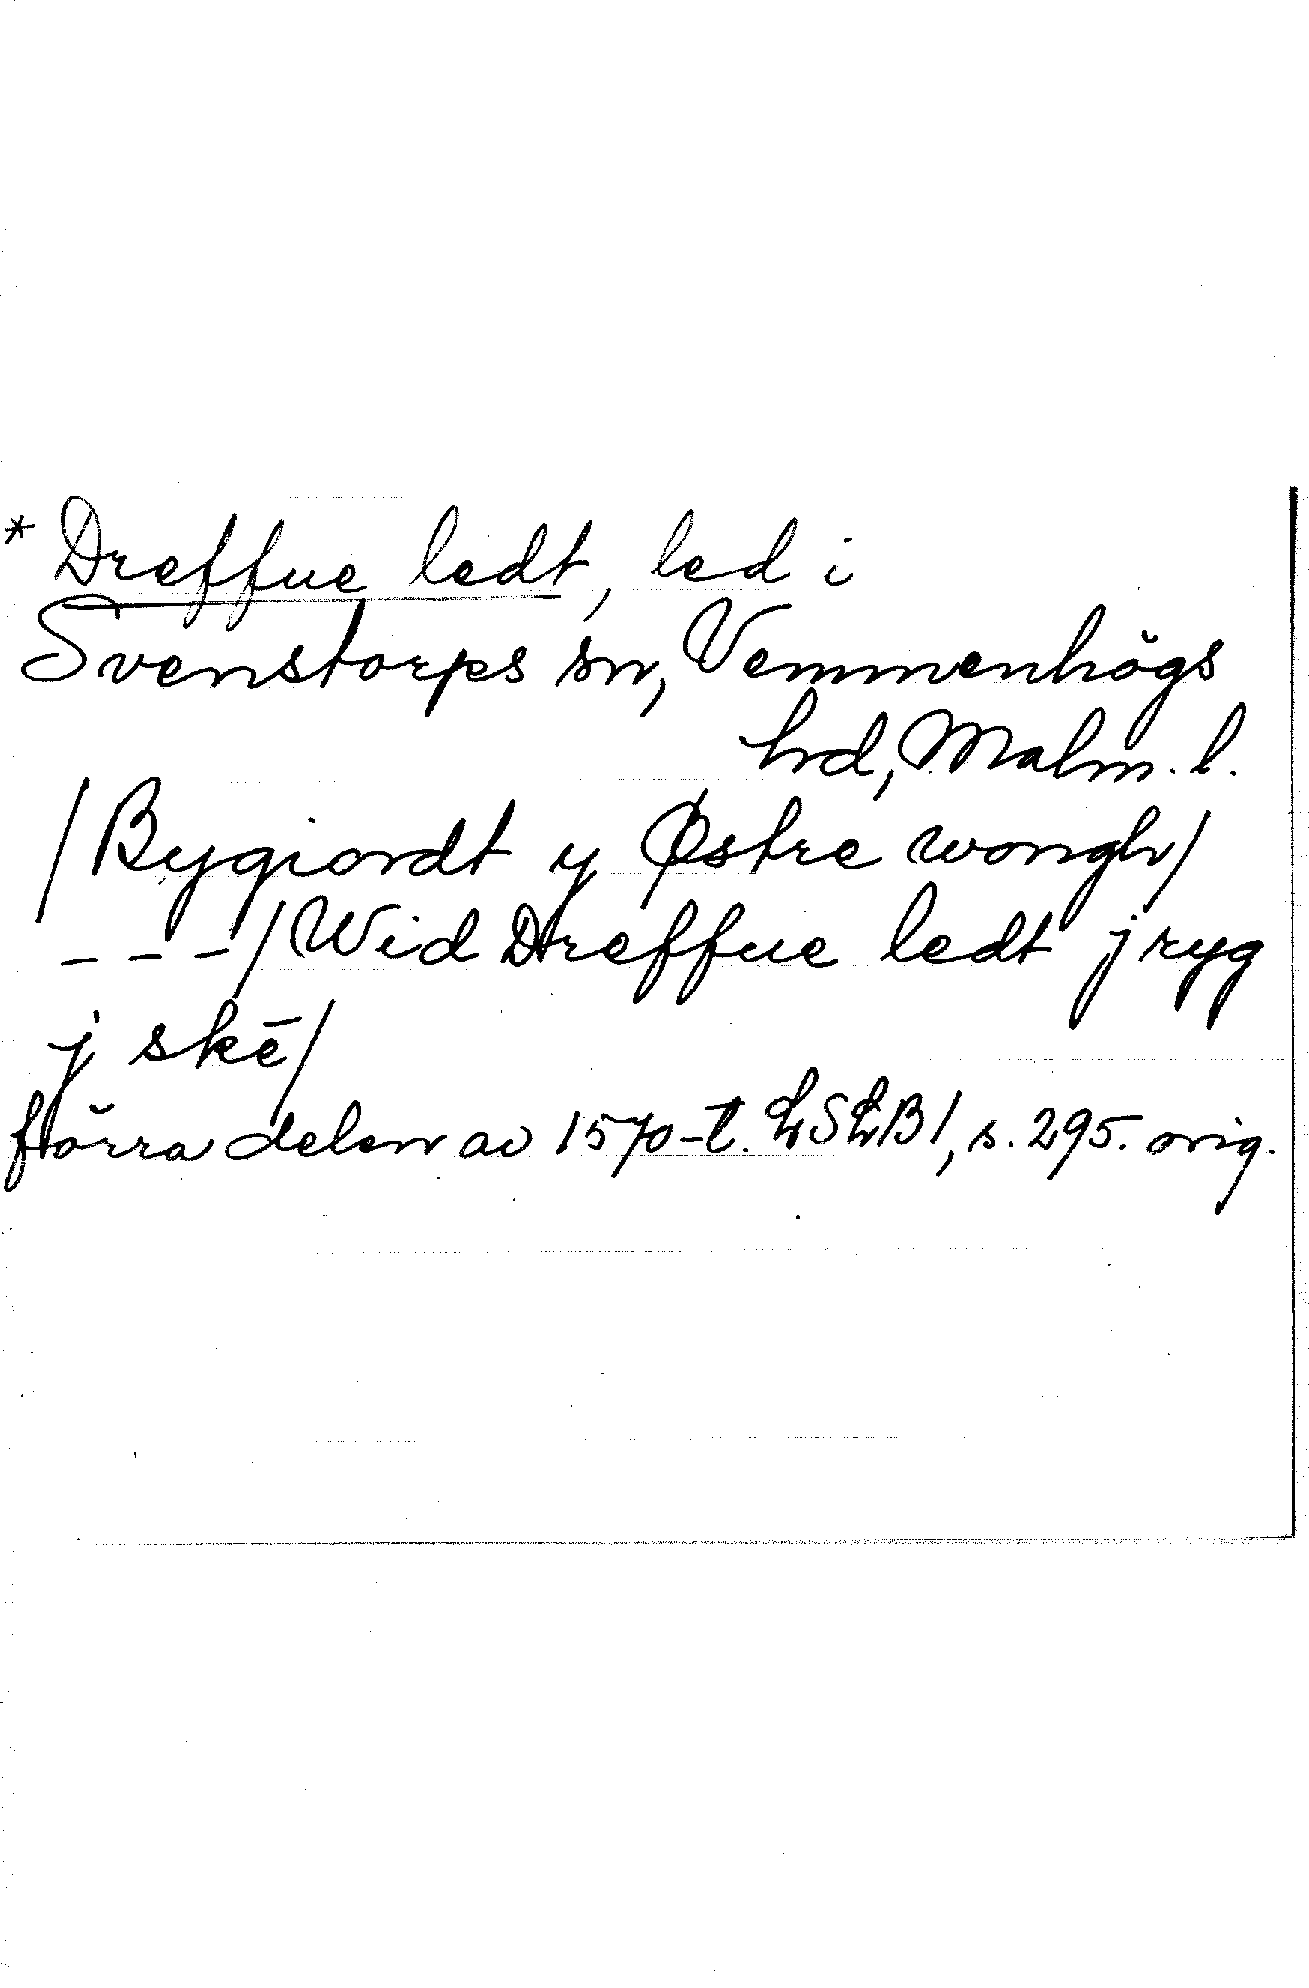 * Dreffue ledt, led i
Svenstorps sn, Vemmenhögs
hd, Malm. l.
/Bygiordt y Østre wongh/
---/Wid Dreffue ledt j ryg
j skē/
förra delen av 1570-t. LSLB1, s. 295. orig.